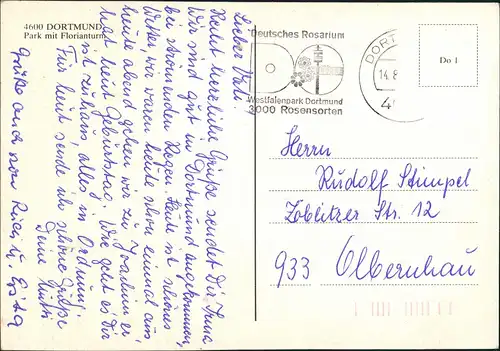 4600 DORTMUND
Park mit Florianturm
Lieber Rolf.
Recht herzliche Grüße sendet Dir Inna
Wir sind gut in Dortmund angekommen,
bei strömenden Regen. Heute ist schönes
Wetter, wir waren heute schon einmal aus
heute abend gehen wir zu Joachim er
hat heut Geburtstag. Wie geht es Dir
ist zuhaus, alles in Ordnung.
Für heut sende ich schöne Grüße
Deine Mutti
Grüße auch von
Deutsches Rosarium
Westfalenpark Dortmund
3000 Rosensorten
DORT
14.8
4
Do 1
Herrn
Rudolf Stimpel
Zöblitzer Str. 12
933 Olbernhau